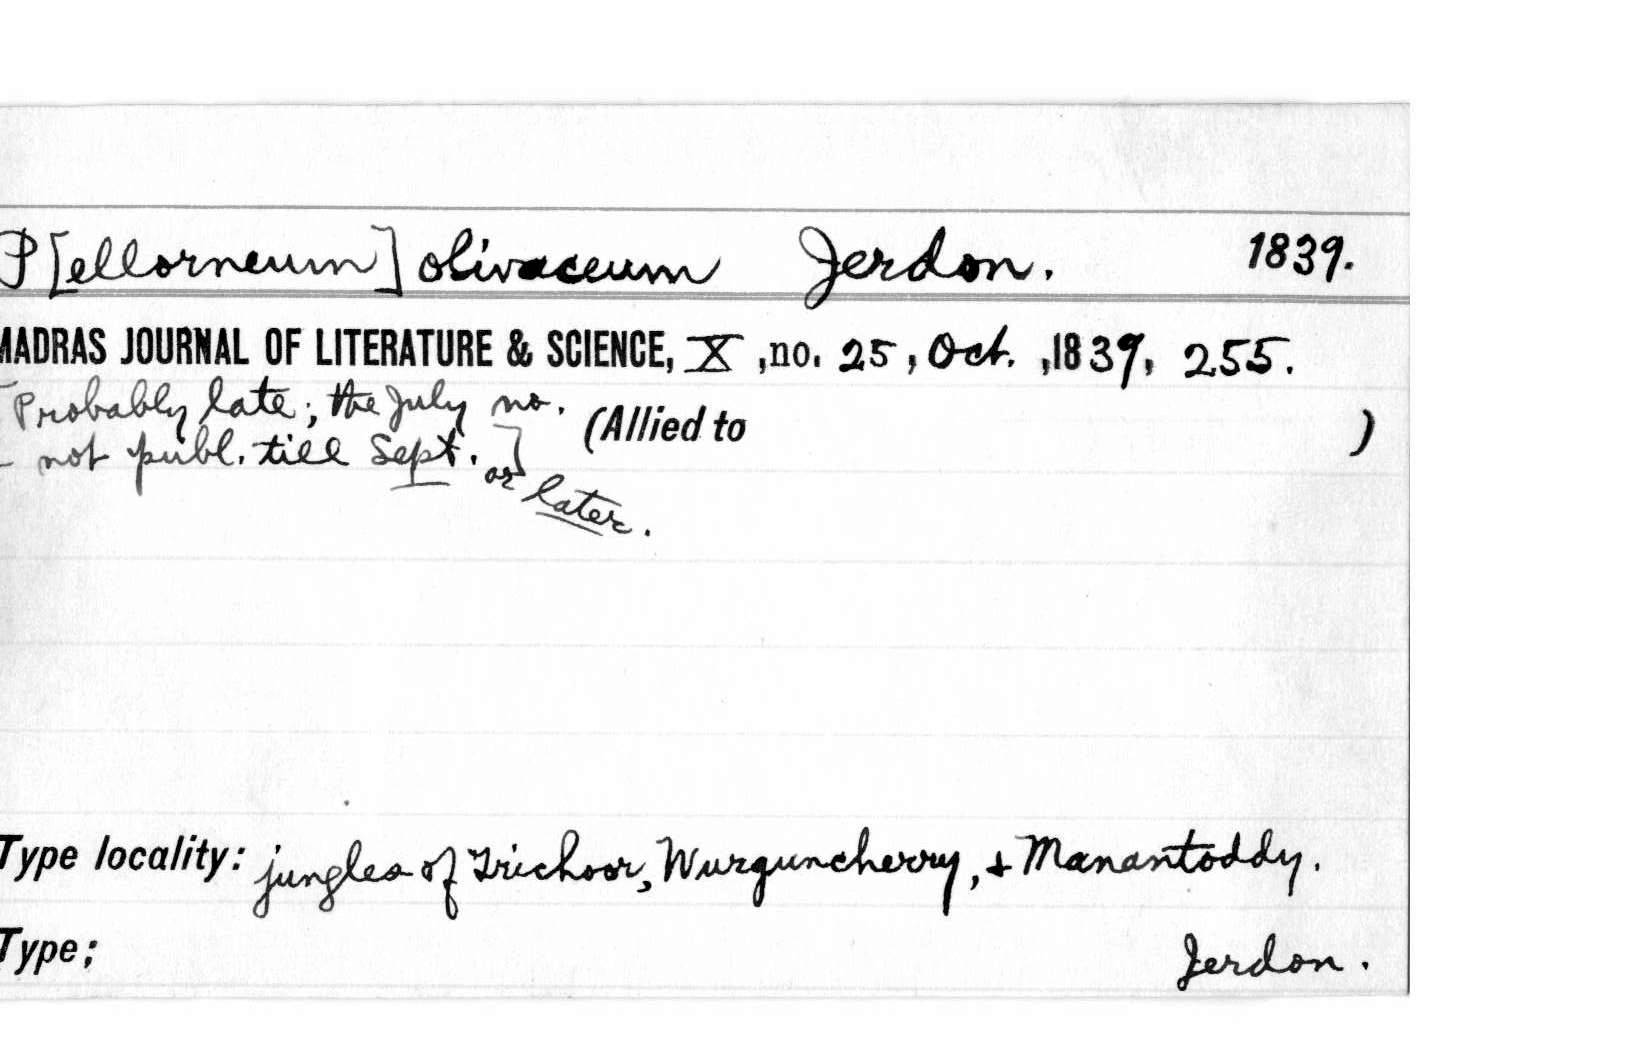 P[ellorneum] olivaceum Jerdon. 1839.
MADRAS JOURNAL OF LITERATURE & SCIENCE, X, no. 25, Oct., 1839, 255.
[Probably late; the July no.
not publ. till Sept.] or later.
(Allied to )
Type locality: jungles of Trichoor, Wurguncherry, & Manantoddy.
Type; Jerdon.